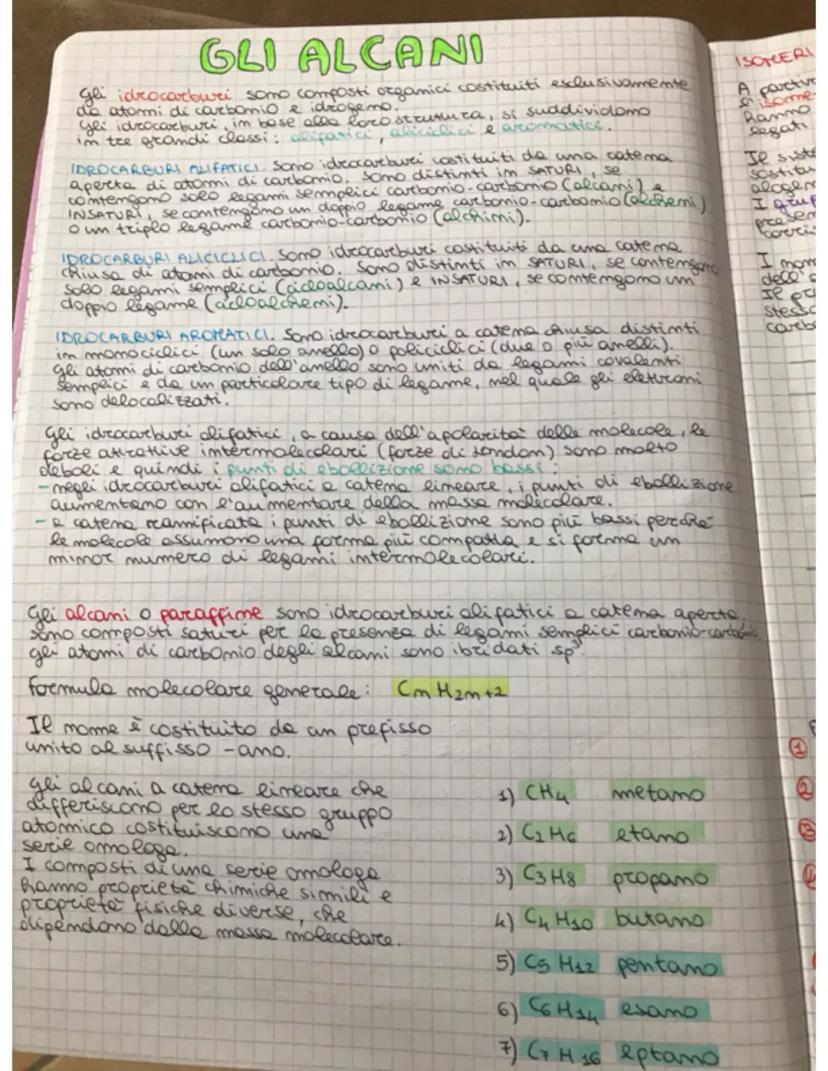 GLI ALCANI
Gli idrocarburi sono composti organici costituiti esclusivamente
da atomi di carbonio e idrogeno.
Gli idrocarburi, in base alla loro struttura, si suddividono
in tre grandi classi: alifatici, aliciclici e aromatici.
IDROCARBURI ALIFATICI. Sono idrocarburi costituiti da una catena
aperta di atomi di carbonio. Sono distinti in SATURI, se
contengono solo legami semplici carbonio-carbonio (alcani) e
INSATURI, se contengono un doppio legame carbonio-carbonio (alcheni)
o un triplo legame carbonio-carbonio (alchini).
IDROCARBURI ALICICLICI. Sono idrocarburi costituiti da una catena
chiusa di atomi di carbonio. Sono distinti in SATURI, se contengono
solo legami semplici (cicloalcani) e INSATURI, se contengono un
doppio legame (cicloalcheni).
IDROCARBURI AROMATICI. Sono idrocarburi a catena chiusa distinti
in monociclici (un solo anello) o policiclici (due o più anelli).
Gli atomi di carbonio dell'anello sono uniti da legami covalenti
semplici e da un particolare tipo di legame, nel quale gli elettroni
sono delocalizzati.
Gli idrocarburi alifatici, a causa dell'apolarità delle molecole, le
forze attrattive intermolecolari (forze di London) sono molto
deboli e quindi i punti di ebollizione sono bassi:
- negli idrocarburi alifatici a catena lineare, i punti di ebollizione
aumentano con l'aumentare della massa molecolare.
- a catena ramificata i punti di ebollizione sono più bassi perché
le molecole assumono una forma più compatta e si forma un
minor numero di legami intermolecolari.
Gli alcani o paraffine sono idrocarburi alifatici a catena aperta,
sono composti saturi per la presenza di legami semplici carbonio-carbonio,
gli atomi di carbonio degli alcani sono ibridati sp³.
formula molecolare generale: CnH2n+2
Il nome è costituito da un prefisso
unito al suffisso -ano.
Gli alcani a catena lineare che
differiscono per lo stesso gruppo
atomico costituiscono una
serie omologa.
I composti di una serie omologa
hanno proprietà chimiche simili e
proprietà fisiche diverse, che
dipendono dalla massa molecolare.
1) CH4 metano
2) C2H6 etano
3) C3H8 propano
4) C4H10 butano
5) C5H12 pentano
6) C6H14 esano
7) C7H16 eptano
ISOMERI
A partir
hanno
legati
Il
alogen
I grup
I
dell'
stess
carbo
1
2
3